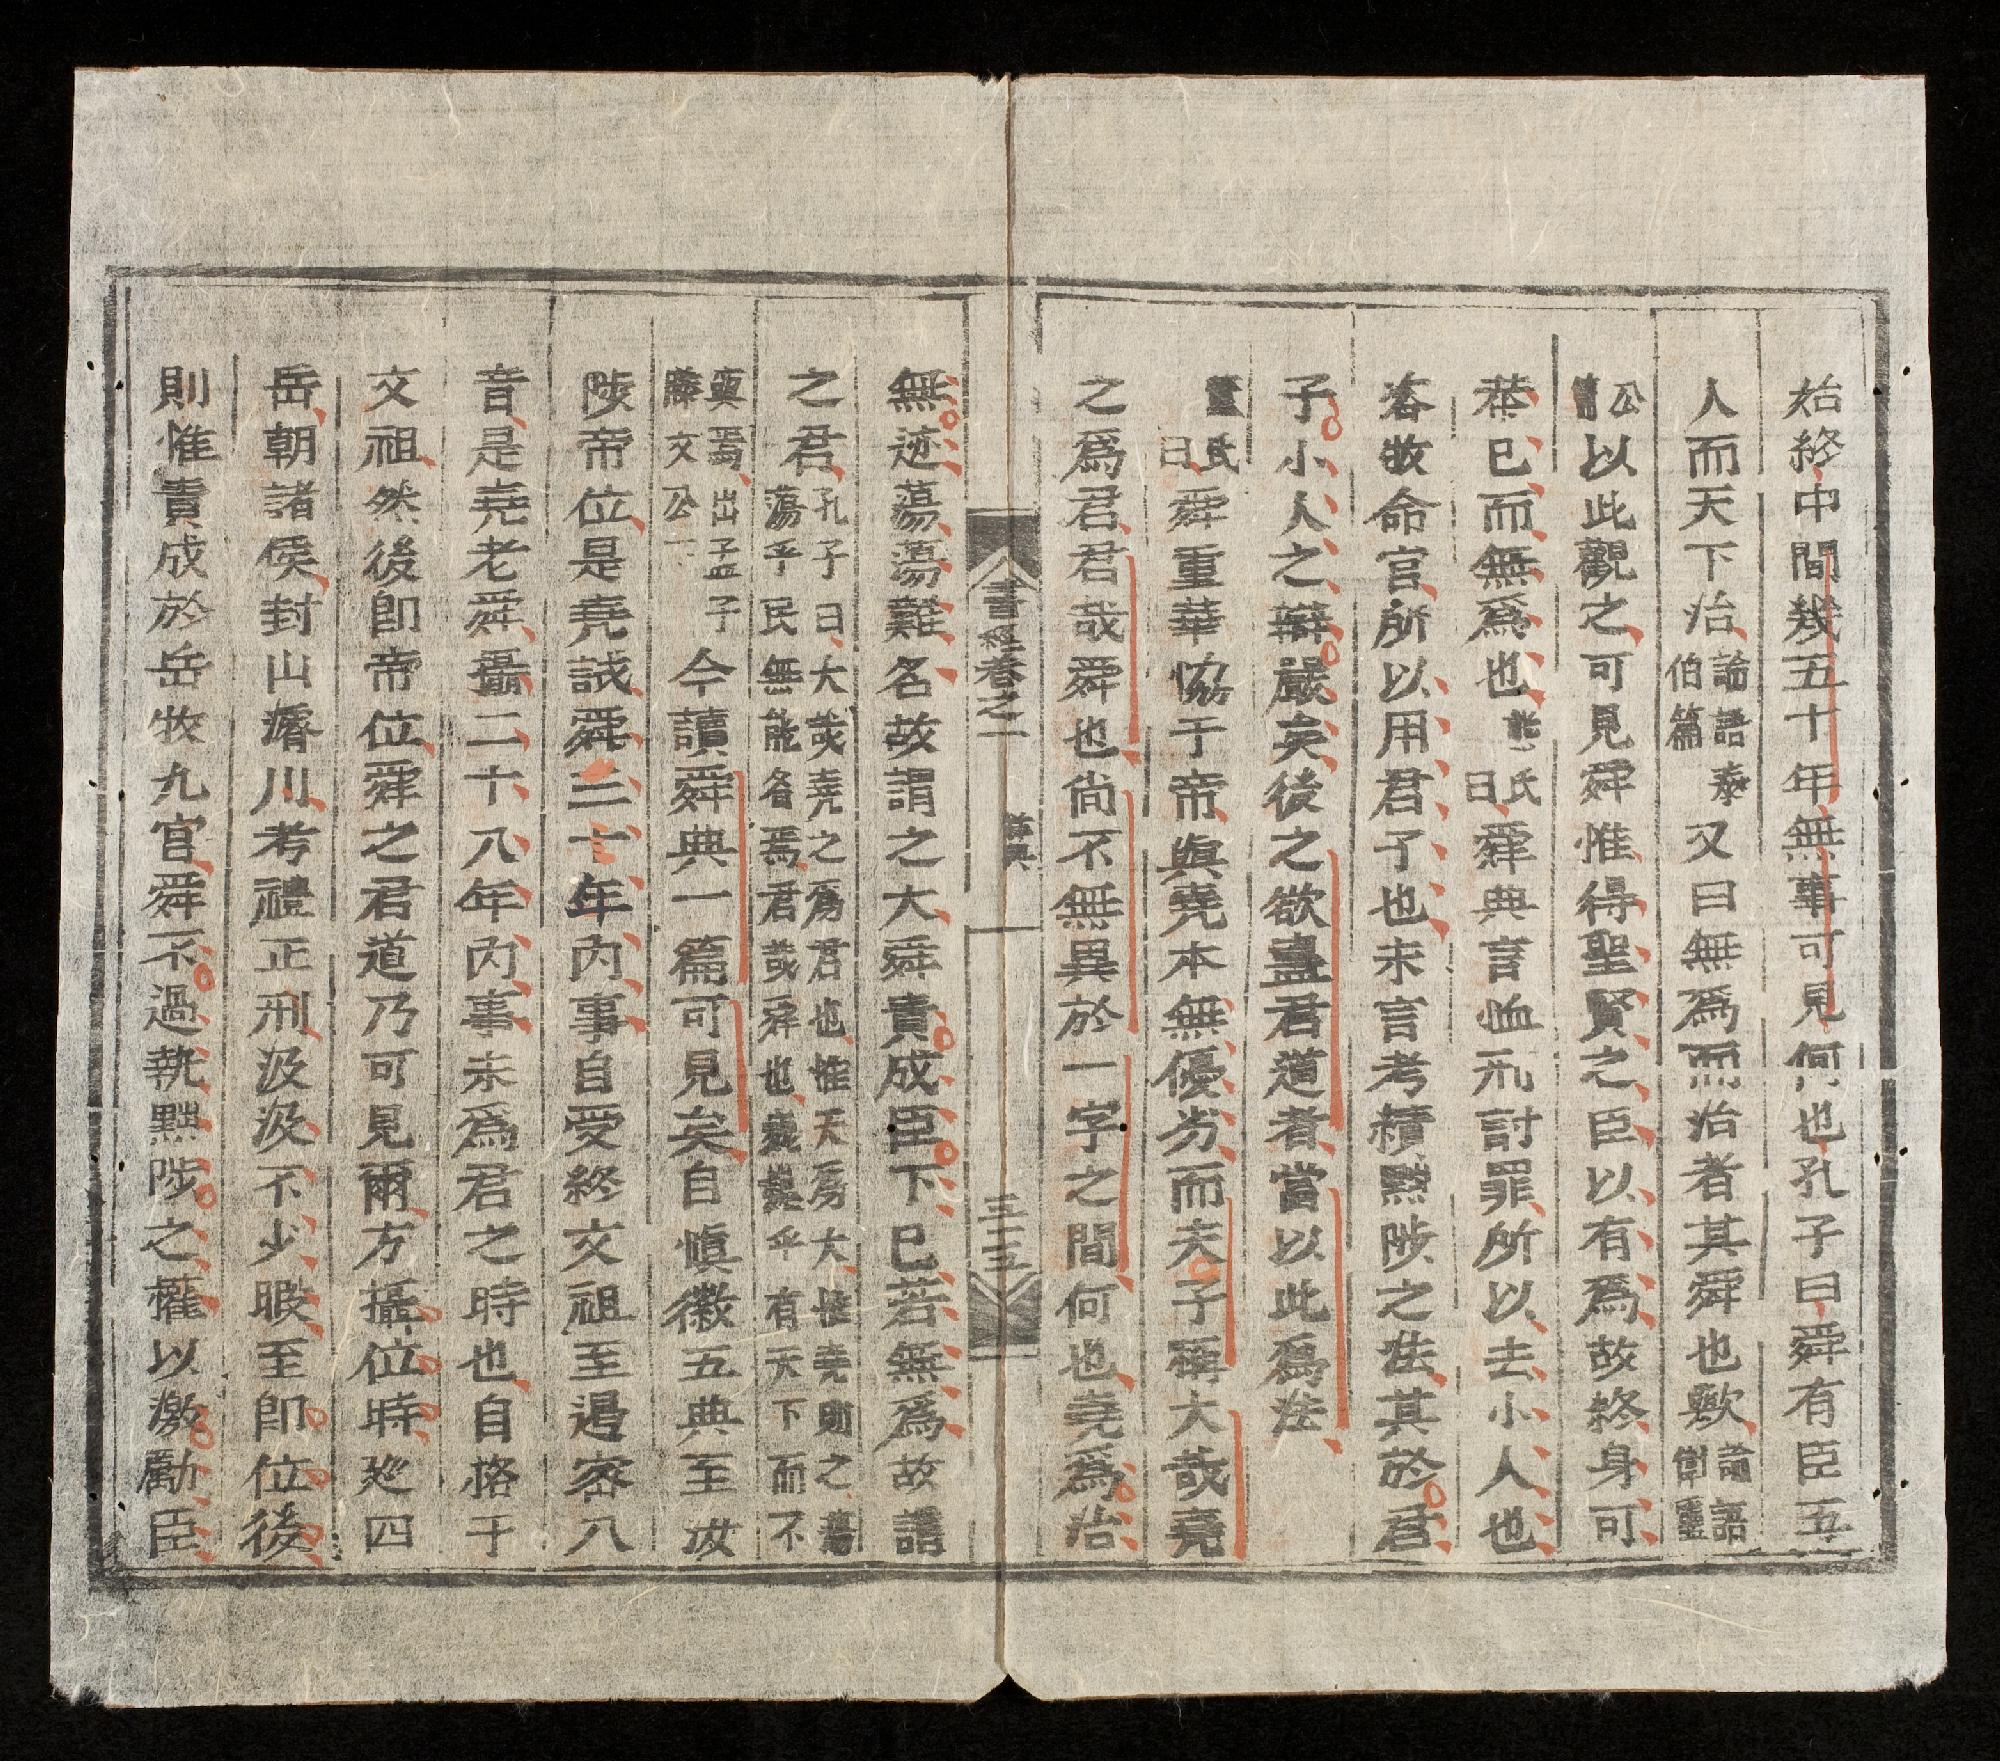 始終中間幾五十年無事可見何也孔子曰舜有臣五
人而天下治論語泰伯篇又曰無爲而治者其舜也歟論語衛靈
公篇以此觀之可見舜惟得聖賢之臣以有爲故終身可
恭已而無爲也 氏曰舜典言恤刑討罪所以去小人也
咨牧命官所以用君子也未言考績黜陟之法其於君
子小人之辯嚴矣後之欲盡君道者當以此爲法
董氏曰舜重華恊于帝與堯本無優劣而夫子稱大哉堯
之爲君君哉舜也尙不無異於一字之間何也堯爲治
書經卷之一 舜典 三十五
無迹蕩蕩難名故謂之大舜責成臣下已若無爲故謂
之君孔子曰大哉堯之爲君也惟天爲大惟堯則之蕩蕩乎民無能名焉君哉舜也巍巍乎有天下而不
與焉出孟子藤文公下今讀舜典一篇可見矣自愼徽五典至汝
陟帝位是堯試舜三十年內事自受終文祖至遏密八
音是堯老舜攝二十八年內事未爲君之時也自格于
文祖然後卽帝位舜之君道乃可見爾方攝位時廵四
岳朝諸侯封山濬川考禮正刑汲汲不少暇至卽位後
則惟責成於岳牧九官舜不過執黜陟之權以激勵臣